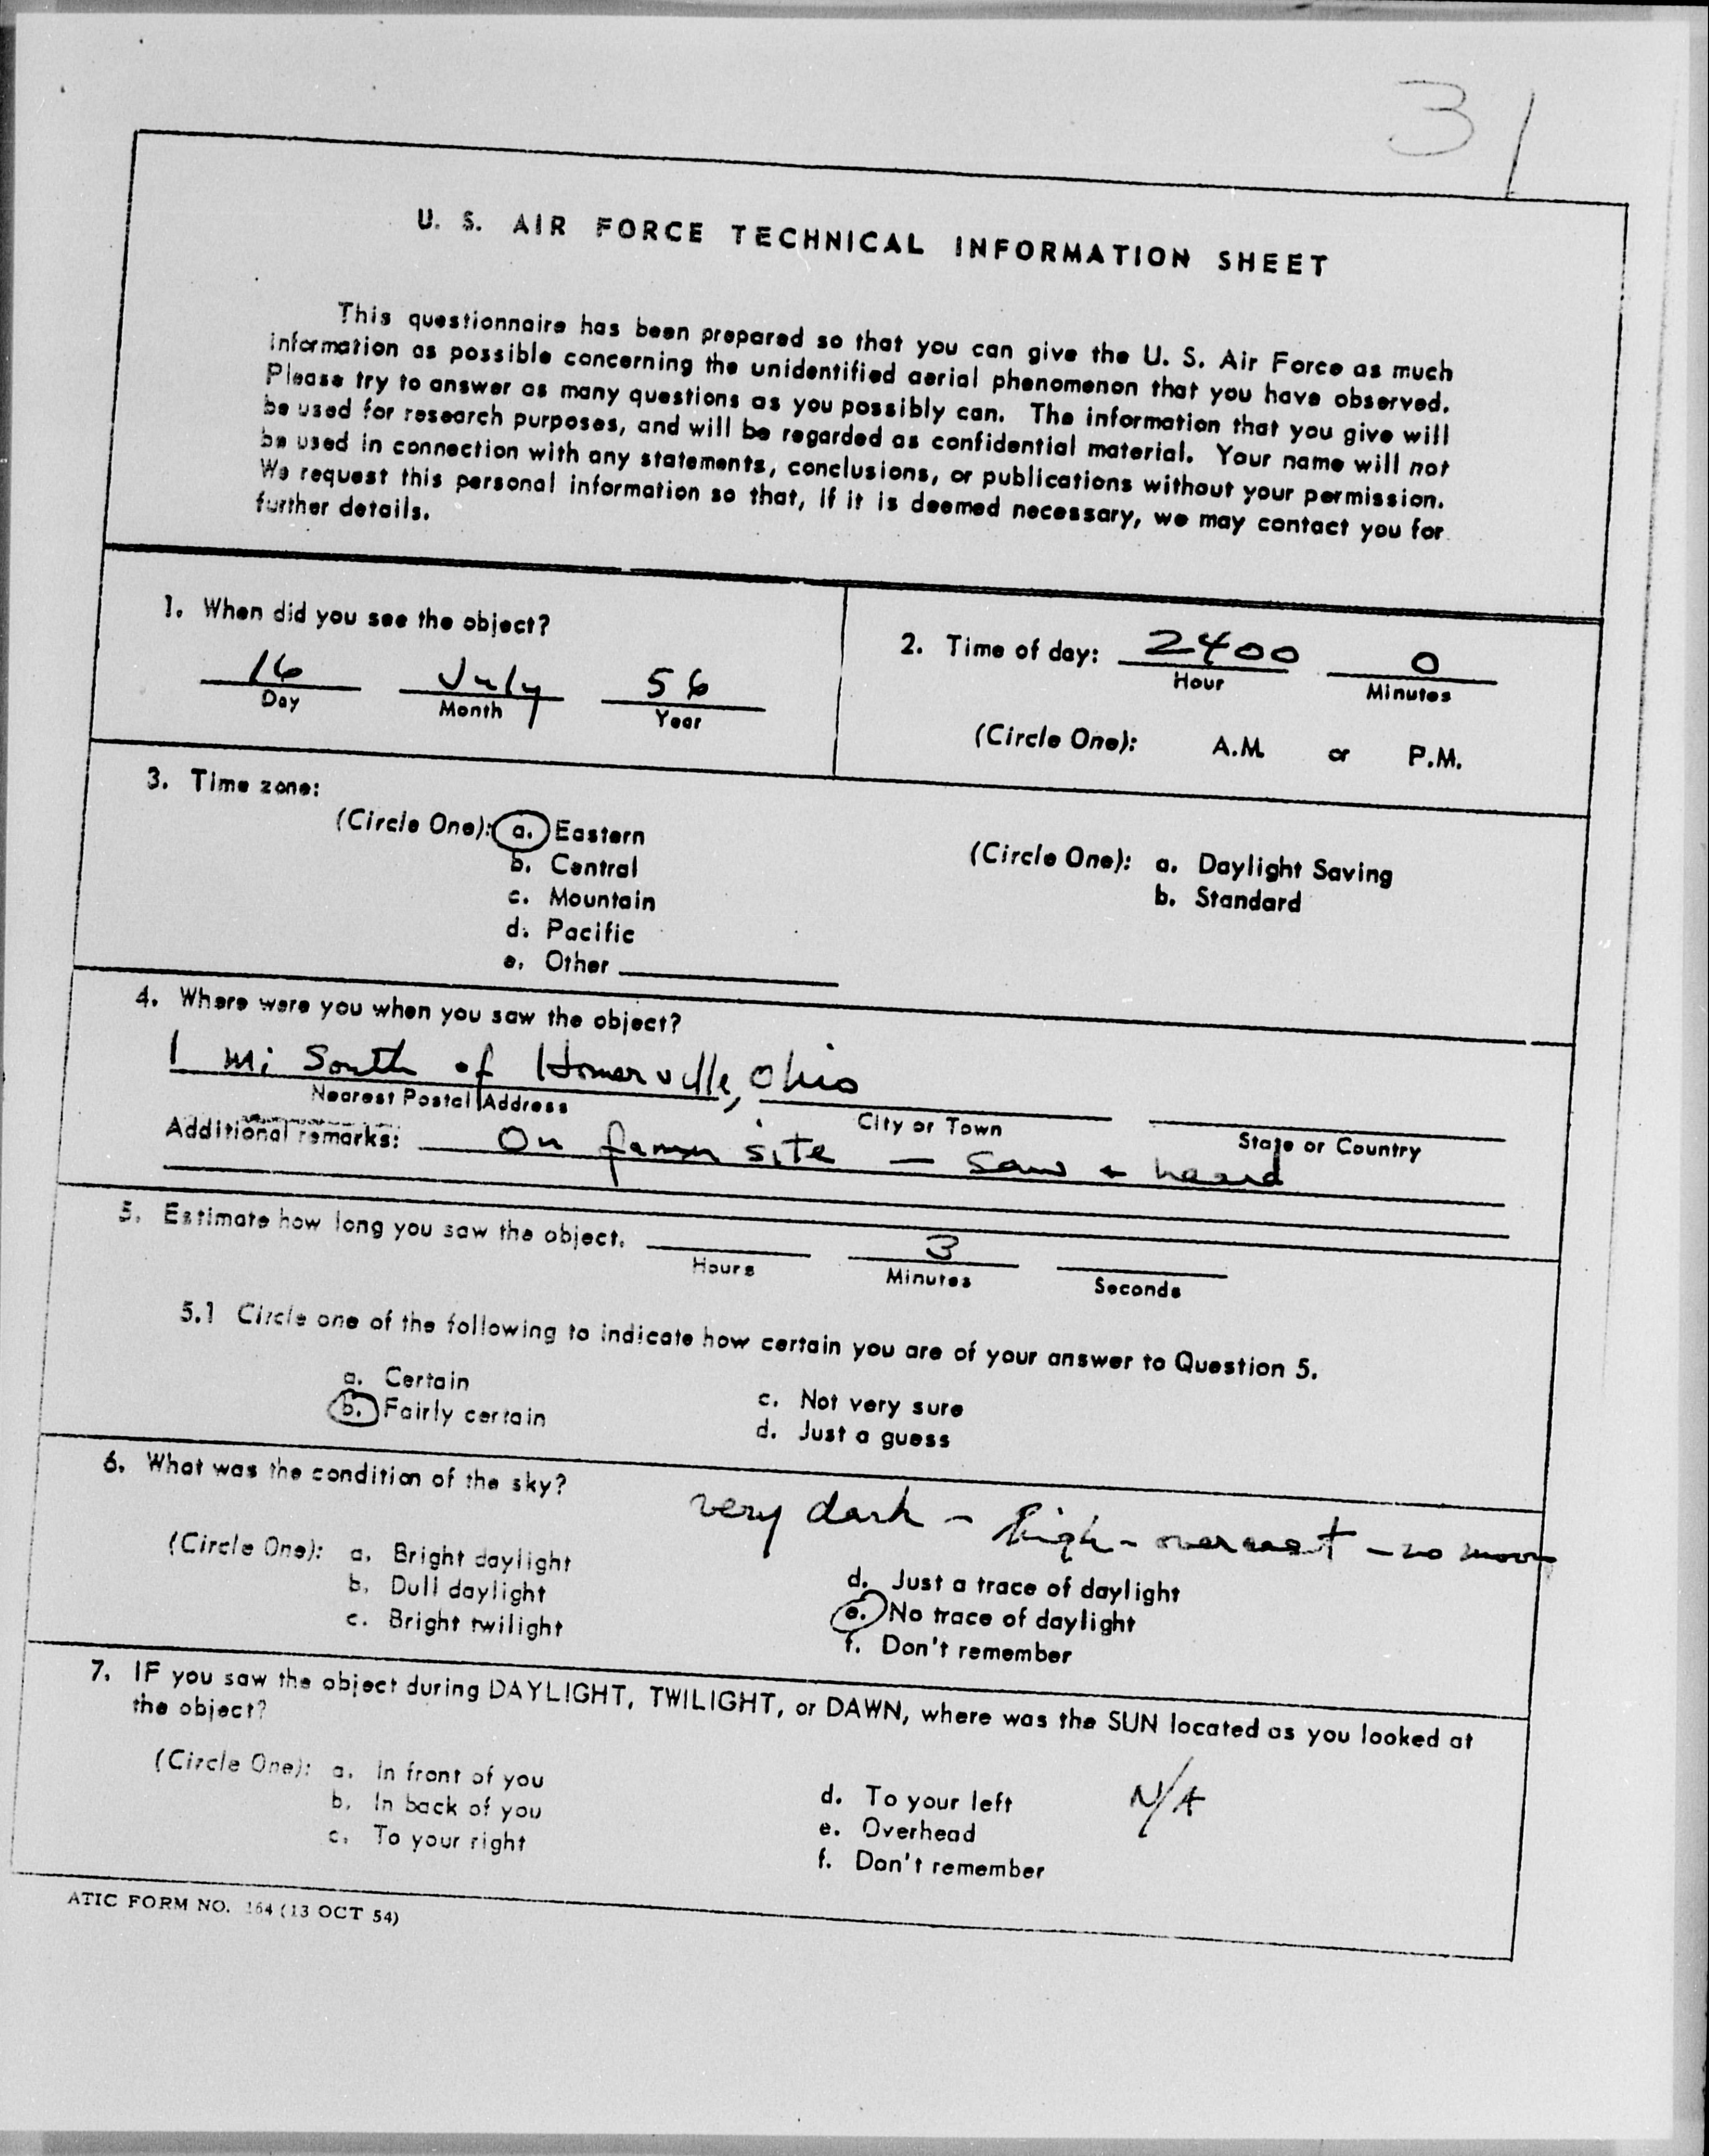 31
U. S. AIR FORCE TECHNICAL INFORMATION SHEET
This questionnaire has been prepared so that you can give the U. S. Air Force as much
information as possible concerning the unidentified aerial phenomenon that you have observed.
Please try to answer as many questions as you possibly can. The information that you give will
be used for research purposes, and will be regarded as confidential material. Your name will not
be used in connection with any statements, conclusions, or publications without your permission.
We request this personal information so that, if it is deemed necessary, we may contact you for
further details.
1. When did you see the object?
16 July 56
Day Month Year
2. Time of day: 2400 0
Hour Minutes
(Circle One): A.M. or P.M.
3. Time zone:
(Circle One): a. Eastern
b. Central
c. Mountain
d. Pacific
e. Other
(Circle One): a. Daylight Saving
b. Standard
4. Where were you when you saw the object?
1 mi South of Homerville, Ohio
Nearest Postal Address City or Town State or Country
Additional remarks: On farm site - saw + heard
5. Estimate how long you saw the object. 3
Hours Minutes Seconds
5.1 Circle one of the following to indicate how certain you are of your answer to Question 5.
a. Certain
b. Fairly certain
c. Not very sure
d. Just a guess
6. What was the condition of the sky?
very dark - high - overcast - no moon
(Circle One): a. Bright daylight
b. Dull daylight
c. Bright twilight
d. Just a trace of daylight
e. No trace of daylight
f. Don't remember
7. IF you saw the object during DAYLIGHT, TWILIGHT, or DAWN, where was the SUN located as you looked at
the object?
(Circle One): a. In front of you
b. In back of you
c. To your right
d. To your left
e. Overhead
f. Don't remember
N/A
ATIC FORM NO. 164 (13 OCT 54)